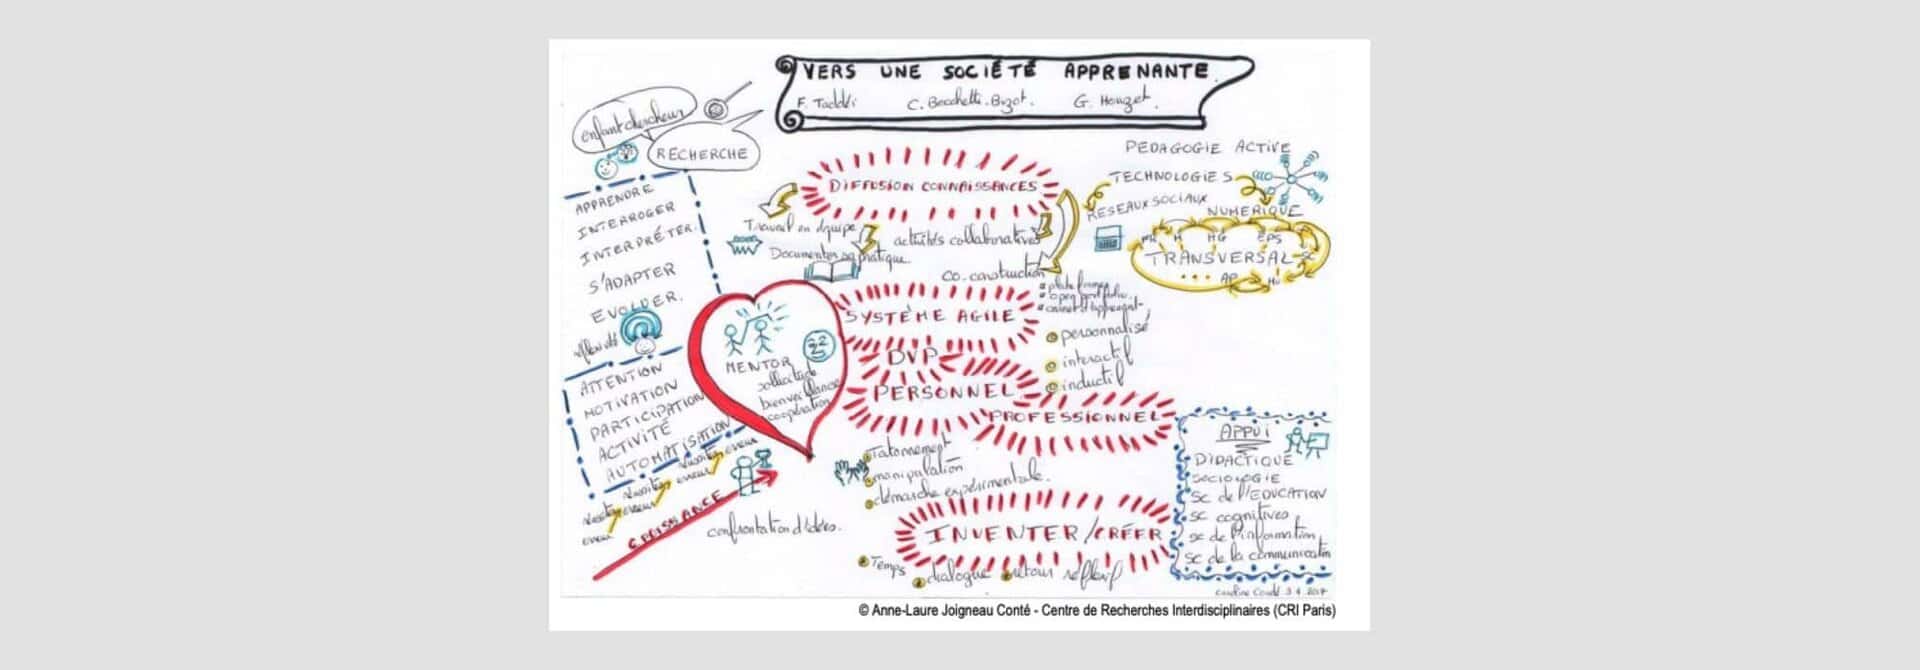 VERS UNE SOCIÉTÉ APPRENANTE
F. Taddéi C. Becchetti-Bizot. G. Houzet.
enfant chercheur
RECHERCHE
APPRENDRE
INTERROGER
INTERPRÉTER.
S'ADAPTER
EVOLUER.
réflexivité
ATTENTION
MOTIVATION
PARTICIPATION
ACTIVITÉ
AUTOMATISATION
erreur
réussite erreur
réussite erreur
réussite erreur
CROISSANCE
confrontation d'idées.
MENTOR
sollicitude
bienveillance
coopération
DIFFUSION CONNAISSANCES
Travail en équipe
Documenter sa pratique
activités collaboratives
co-construction
plateformes
open portfolio
SYSTÈME AGILE
personnalisé
interactif
inductif
DVP
PERSONNEL
PROFESSIONNEL
Tatonnement
manipulation
démarche expérimentale.
INVENTER/CRÉER
Temps
dialogue
retour réflexif
PEDAGOGIE ACTIVE
TECHNOLOGIES
RESEAUX SOCIAUX
NUMERIQUE
FR M HG EPS
TRANSVERSAL SC
... AP MU
APPUI
DIDACTIQUE
SOCIOLOGIE
SC de l'EDUCATION
SC cognitives
SC de l'information
SC de la communication
3.4.2017
© Anne-Laure Joigneau Conté - Centre de Recherches Interdisciplinaires (CRI Paris)